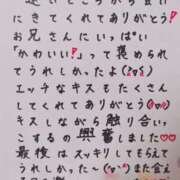 にきてくれてありがとう!
お兄さんにいっぱい
「かわいい!」って褒められ
てうれしかったよ(^o^)
エッチなキスもたくさん
してくれてありがとう(^o^)
キスしながら触り合いっ
こするの興奮しました♡♡
最後はスッキリしてもらえて
うれしかった〜(^o^)また会え